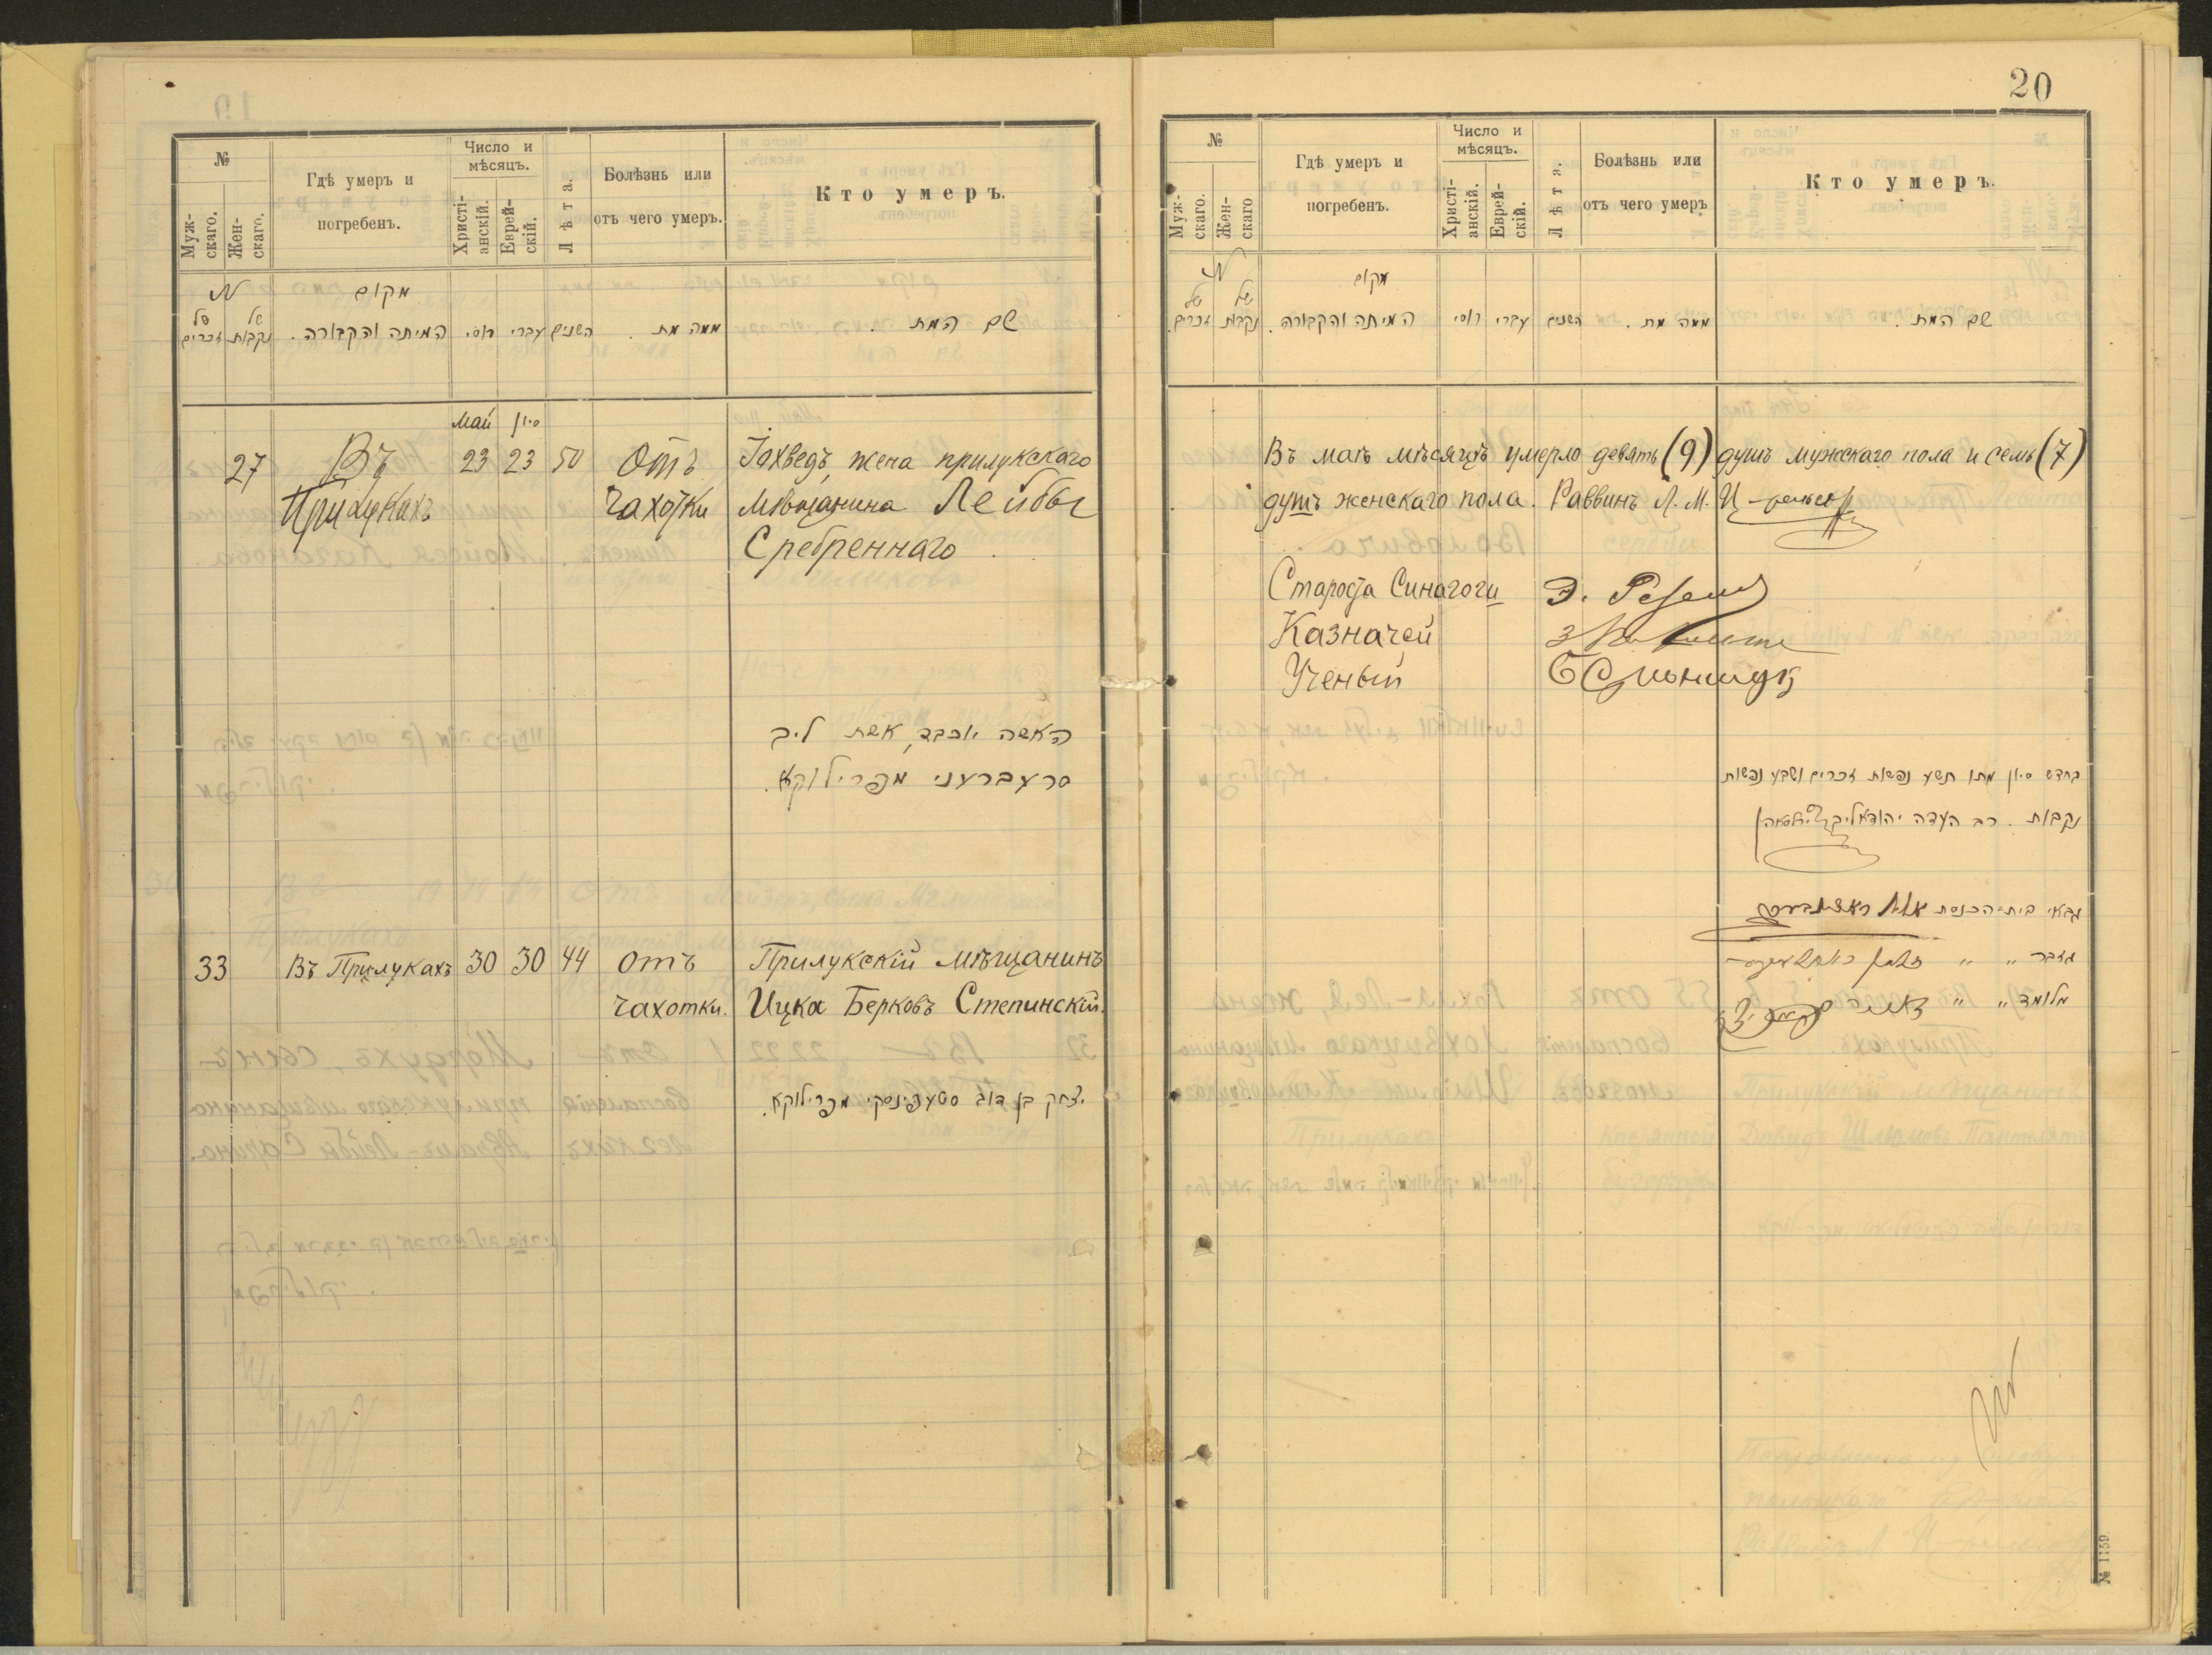 №
Муж-
скаго.
Жен-
скаго.
Гдѣ умеръ и
погребенъ.
Число и
мѣсяцъ.
Христі-
анскій.
Еврей-
скій.
Лѣта.
Болѣзнь или
отъ чего умеръ.
Кто умеръ.
№
של זכרים
של נקבות
מקום
המיתה והקבורה.
רוסי
עברי
השנים
ממה מת.
שם המת.
май סיון
27 Въ 23 23 50 Отъ Іохведъ, жена прилукскаго
Прилукахъ чахотки мѣщанина Лейбы
Сребреннаго
האשה יוכבד, אשת ליב
סרעברעני מפרילוקא.
33 Въ Прилукахъ 30 30 44 отъ Прилукскій мѣщанинъ
чахотки. Ицка Берковъ Степинскій.
יצחק בן דוב סטעפינסקי מפרילוקא.
20
№
Муж-
скаго.
Жен-
скаго
Гдѣ умеръ и
погребенъ.
Число и
мѣсяцъ.
Христі-
анскій.
Еврей-
скій.
Лѣтя.
Болѣзнь или
отъ чего умеръ
Кто умеръ.
№
של זכרים.
של נקבות
מקום
המיתה והקבורה.
רוסי
עברי
השנים
ממה מת.
שם המת.
Въ маѣ мѣсяцѣ умерло девять (9) душъ мужскаго пола и семь (7)
душъ женскаго пола. Раввинъ Л. М.
Староста Синагоги Э.
Казначей
Ученый
בחדש סיון מתו תשע נפשות זכרים ושבע נפשות
נקבות. רב העדה יהודא ליב
גבאי בית-הכנסת
גזבר " "
מלומד " "
№ 1159